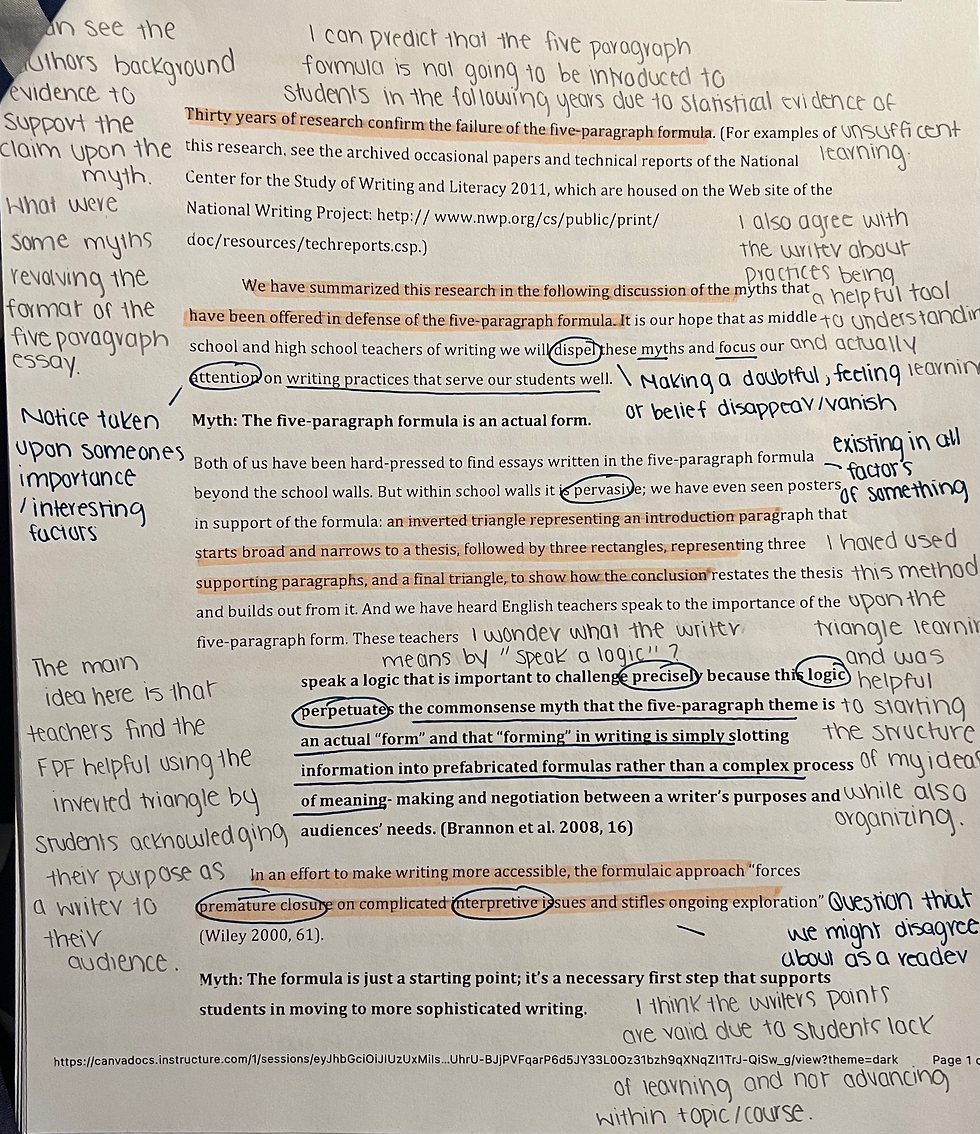 an see the
authors background
evidence to
support the
claim upon the
myth.
What were
some myths
revolving the
format of the
five paragraph
essay.
Notice taken
upon someones
importance
/interesting
factors
The main
idea here is that
teachers find the
FPF helpful using the
inverted triangle by
students acknowledging
their purpose as
a writer to
their
audience.
I can predict that the five paragraph
formula is not going to be introduced to
students in the following years due to statistical evidence of
unsufficent
learning.
Thirty years of research confirm the failure of the five-paragraph formula. (For examples of
this research, see the archived occasional papers and technical reports of the National
Center for the Study of Writing and Literacy 2011, which are housed on the Web site of the
National Writing Project: hetp:// www.nwp.org/cs/public/print/
doc/resources/techreports.csp.)
We have summarized this research in the following discussion of the myths that
have been offered in defense of the five-paragraph formula. It is our hope that as middle
school and high school teachers of writing we will dispel these myths and focus our
attention on writing practices that serve our students well.
Myth: The five-paragraph formula is an actual form.
Both of us have been hard-pressed to find essays written in the five-paragraph formula
beyond the school walls. But within school walls it is pervasive; we have even seen posters
in support of the formula: an inverted triangle representing an introduction paragraph that
starts broad and narrows to a thesis, followed by three rectangles, representing three
supporting paragraphs, and a final triangle, to show how the conclusion restates the thesis
and builds out from it. And we have heard English teachers speak to the importance of the
five-paragraph form. These teachers
I wonder what the writer
means by "speak a logic"?
speak a logic that is important to challenge precisely because this logic
perpetuates the commonsense myth that the five-paragraph theme is
an actual "form" and that "forming" in writing is simply slotting
information into prefabricated formulas rather than a complex process
of meaning- making and negotiation between a writer's purposes and
audiences' needs. (Brannon et al. 2008, 16)
In an effort to make writing more accessible, the formulaic approach "forces
premature closure on complicated interpretive issues and stifles ongoing exploration"
(Wiley 2000, 61).
Myth: The formula is just a starting point; it's a necessary first step that supports
students in moving to more sophisticated writing.
I also agree with
the writer about
practices being
a helpful tool
to understandin
and actually
learnin
Making a doubtful, feeling
or belief disappear/vanish
existing in all
factors
of something
I haved used
this method
upon the
triangle learnin
and was
helpful
to starting
the structure
of my ideas
while also
organizing.
Question that
we might disagree
about as a reader
I think the writers points
are valid due to students lack
of learning and not advancing
within topic/course.
https://canvadocs.instructure.com/1/sessions/eyJhbGciOiJIUzUxMiIs...UhrU-BJjPVFqarP6d5JY33L0Oz31bzh9qXNqZI1TrJ-QiSw_g/view?theme=dark
Page 1